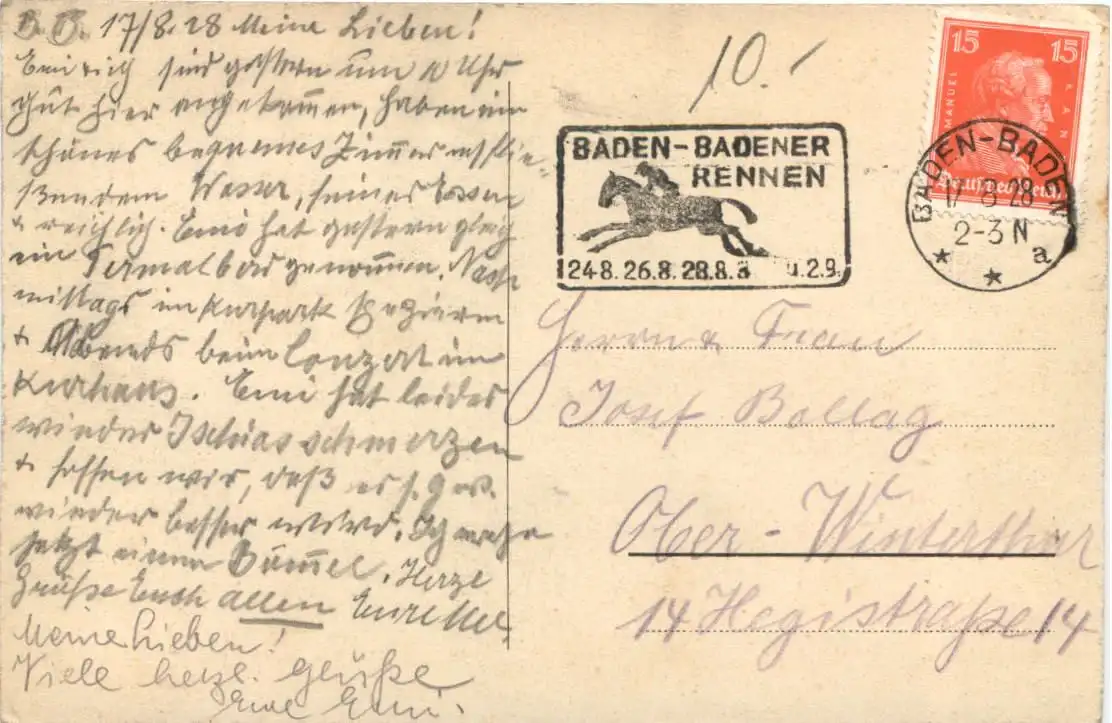 B. B. 17/8.28 Meine Lieben!
Emi & ich sind gestern um 10 Uhr
gut hier angekommen, haben ein
schönes bequemes Zimmer m. flie-
ßendem Wasser, feines Essen
+ reichlich. Emi hat gestern gleich
ein Termalbad genommen. Nach-
mittags im Kurpark spazieren
+ Abends beim Conzert im
Kurhaus. Emi hat leider
wieder Ischiasschmerzen
+ hoffen wir, daß es s. G. w.
wieder besser wird. Ich mache
jetzt einen Bummel. Herzl.
Grüße Euch allen Eure
Meine Lieben!
Viele herzl. Grüße
Eure Emi.
10.-
BADEN-BADENER
RENNEN
24.8. 26.8. 28.8. 3 u. 2.9.
15 15
IMMANUEL KANT
Deutsches Reich
BADEN-BADEN
17.8.28
2-3 N
* * a
Herrn & Frau
Josef Bollag
Ober-Winterthur
14 Hegistraße 14